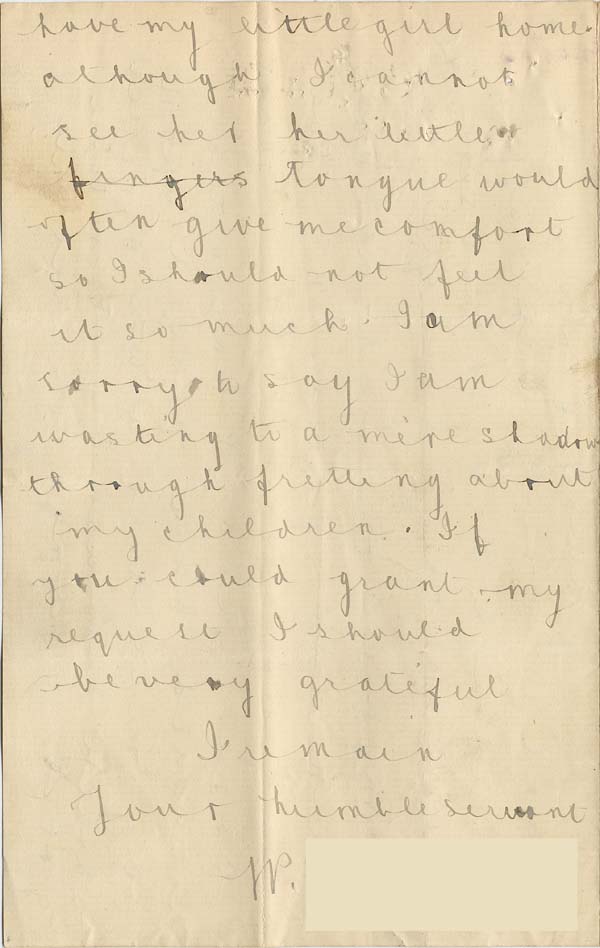 have my little girl home.
although I cannot
see her her little
fingers Tongue would
often give me comfort
so I should not feel
it so much. I am
sorry to say I am
wasting to a mere shadow
through fretting about
my children. If
you could grant my
request I should
be very grateful
I remain
Your humble servant
W.